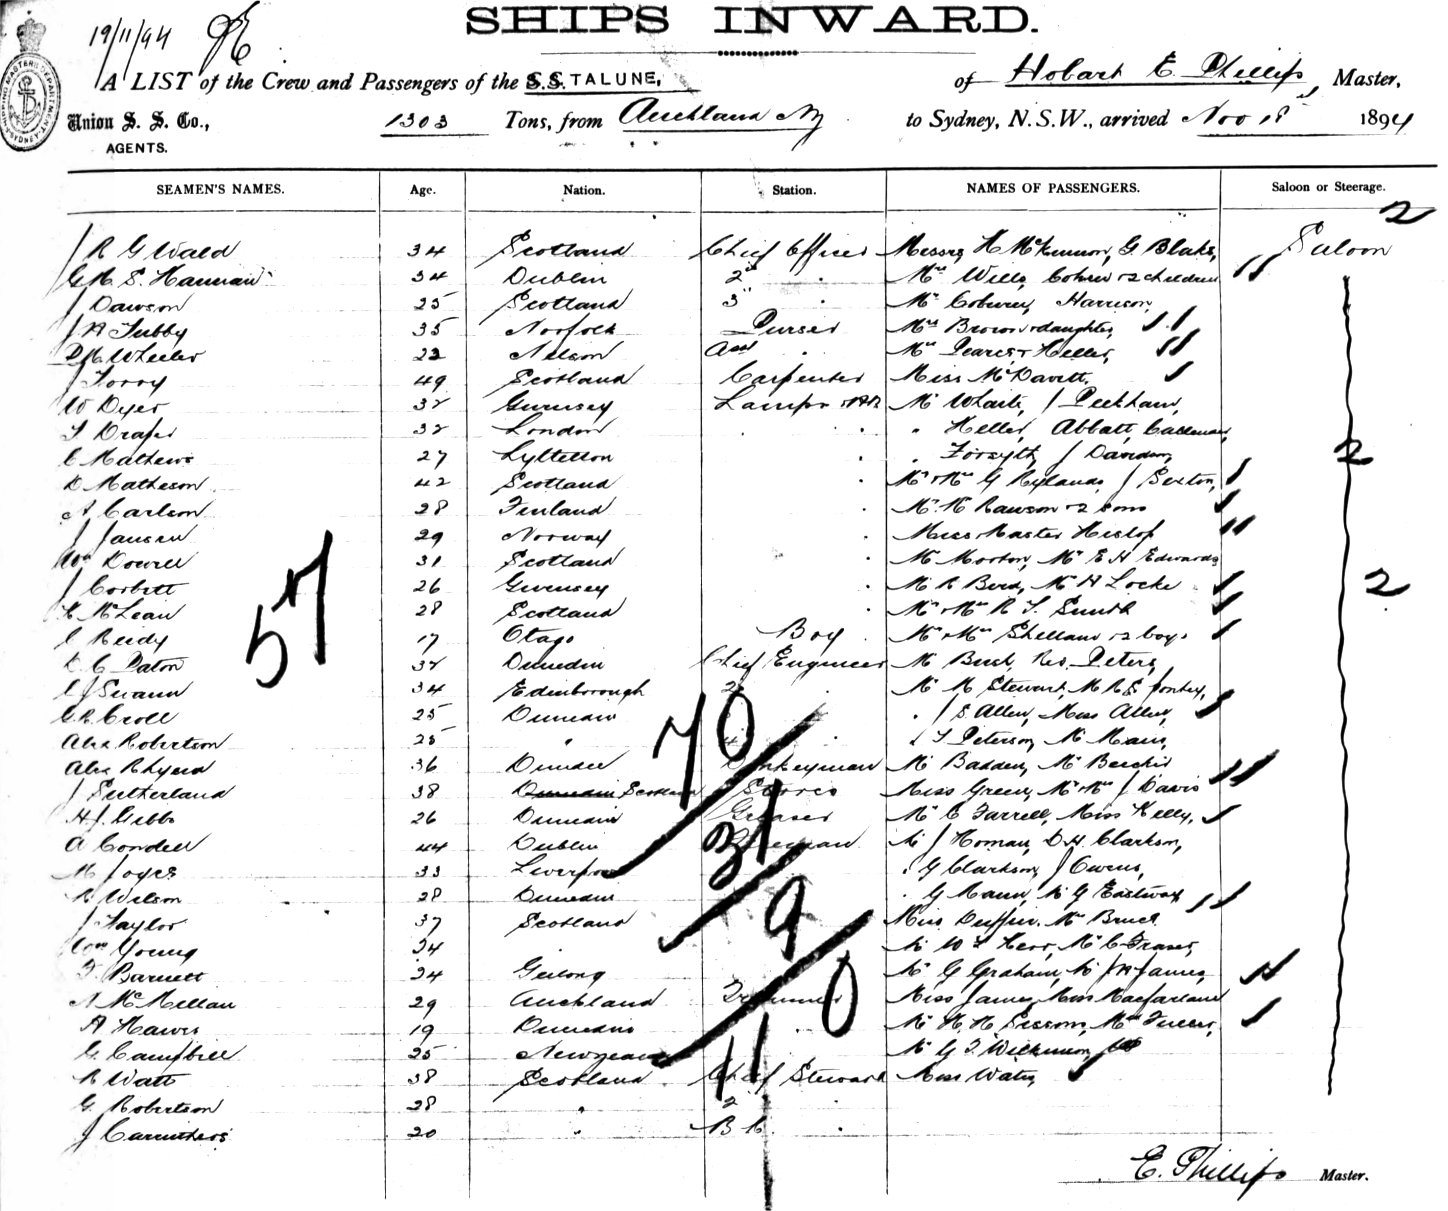 SHIPS INWARD.
19/11/94
A LIST of the Crew and Passengers of the S.S. TALUNE, of Hobart E. Phillips, Master,
Union S. S. Co., 1303 Tons, from Auckland NZ to Sydney, N.S.W., arrived Nov 18 1894
AGENTS.
SEAMEN'S NAMES. Age. Nation. Station. NAMES OF PASSENGERS. Saloon or Steerage.
2
R G Wald 34 Scotland Chief Officer Messrs H McKinnon, G Blake, Saloon
34 Dublin 2 Mrs Wells, Cohen & 2 children
J Dawson 25 Scotland 3 Harrison,
J H Tubby 35 Norfolk Purser Mrs Brown & daughter,
Wheeler 22 Nelson Asst Mrs Pearce & Heller,
J Torry 49 Scotland Carpenter Miss McDavett,
W Dyer 32 Guernsey Lamps & AB Mr White, J Peckham,
T Draper 32 London Heller, Abbott,
C Mathews 27 Lyttelton Forsyth, J Davidson, 2
D Matheson 42 Scotland Mr & Mrs G Rylands, J Sexton,
A Carlson 28 Finland Mr H Rawson & 2 sons
J Jansen 29 Norway Miss & Master Hislop
Wm Dowell 31 Scotland Mr Morton, Mr E H Edwards
J Corbett 26 Guernsey Mr R Bird, Mr A Locke 2
K McLean 28 Scotland Mr & Mrs R T Smith
C Reedy 17 Otago Boy Mr & Mrs & 2 boys
57
D C Paton 32 Dunedin Chief Engineer Mr Bush, Rev. Peters,
C J Swann 34 Edinborough 2 Mr M Stewart,
G R Croll 25 Dunedin 3 J S Allen, Miss Allen,
70
Alex Robertson 25 " 4 T Peterson, Mr Main,
Alex Rhynd 36 Dundee Donkeyman Mr Badden,
J Sutherland 38 Scotland Stores Miss Green, Mr & Mrs J Davis
H J Gibbs 26 Dunedin Greaser Mr C Farrell, Miss Kelly,
31
A Condell 44 Dublin Fireman Mr J Homan, D H Clarkson,
M Joyce 33 Liverpool G Clarkson, J Owens,
R Wilson 28 Dunedin G Mann, Mr G Eastway
9
J Taylor 37 Scotland Miss Duffin, Mrs Bruce
Wm Young 24 Mr W T Kerr, Mr C Fraser,
T Barnett 24 Geelong Mr G Graham, Mr J H James,
0
A McMellan 29 Auckland Trimmer Miss James, Miss Macfarlane
A Hawis 19 Dunedin Mr H H Sissons, Mrs Fuller,
11
G Campbell 25 Mr G T Wilkinson,
R Watt 38 Scotland Chief Steward Miss Waters,
G Robertson 28 " 2
J Carruthers 20 " B C
E. Phillips Master.